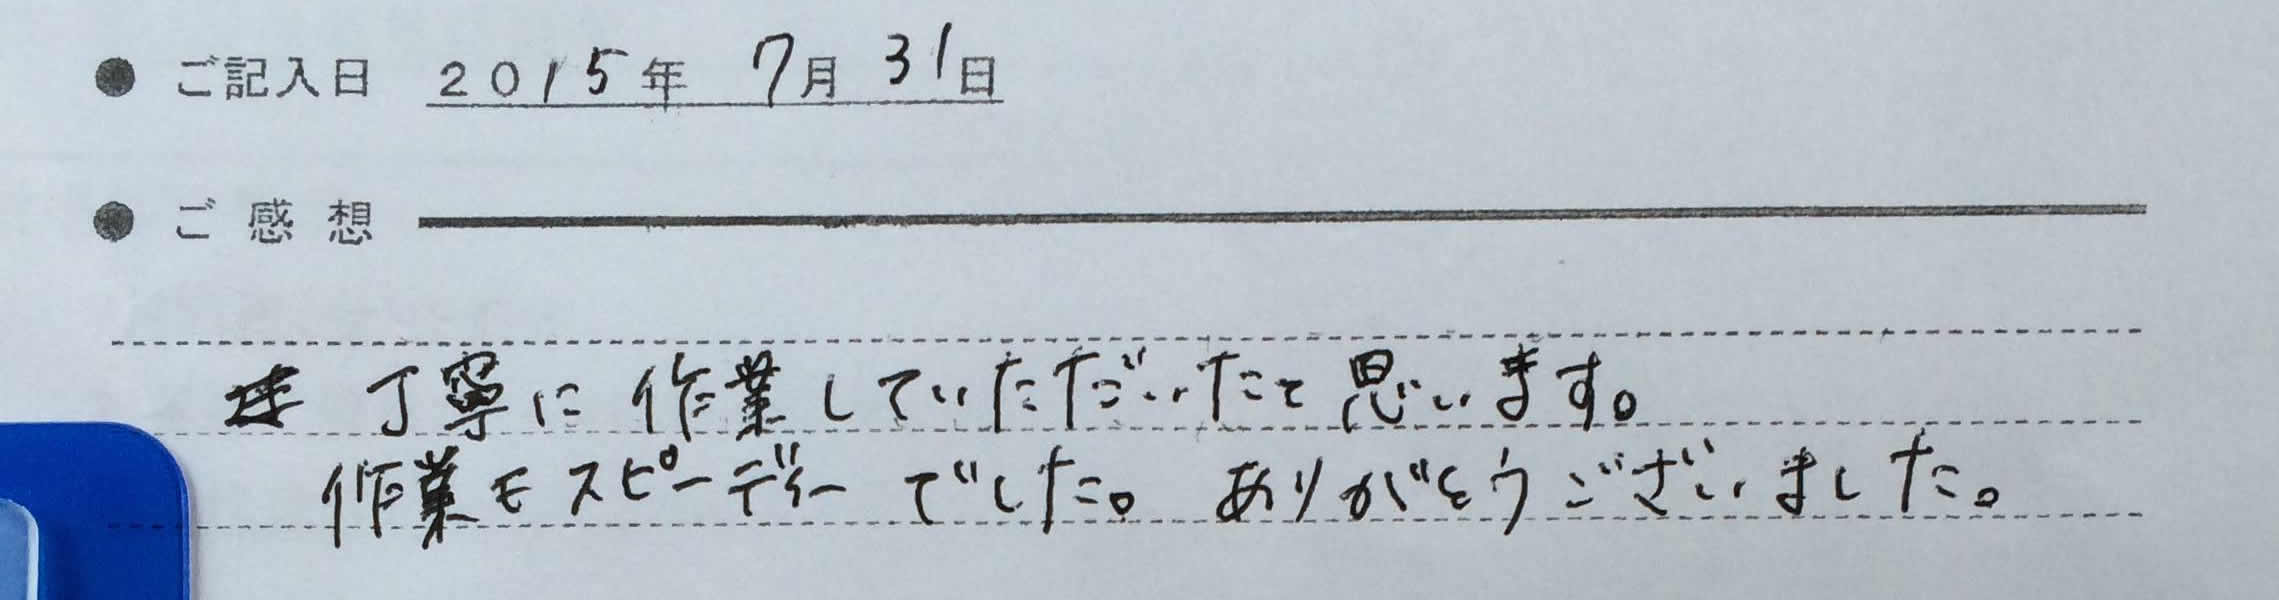 ● ご記入日 2015年 7月 31日
● ご感想
丁寧に作業していただいたと思います。
作業もスピーディーでした。ありがとうございました。